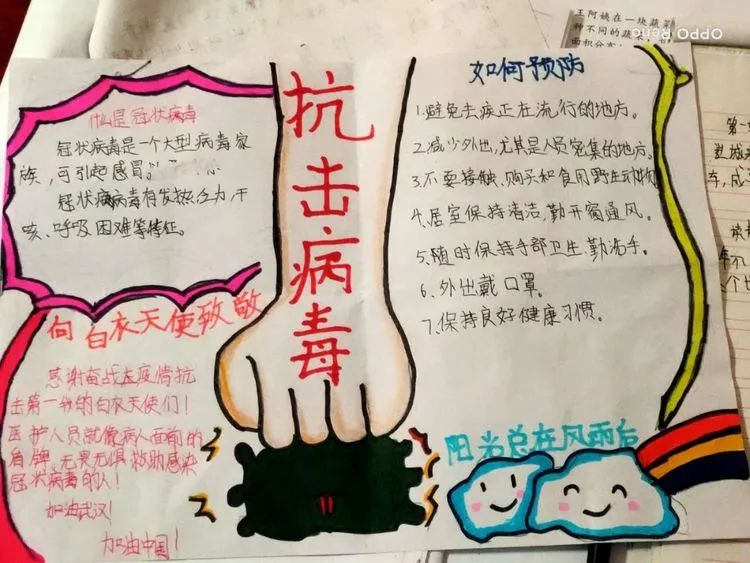 王阿姨在一块蔬菜
种不同的蔬菜，
面积分
OPPO Reno
抗击病毒
什么是冠状病毒
冠状病毒是一个大型病毒家
族，可引起感冒
冠状病病毒有发热、乏力、干
咳、呼吸困难等特征。
向白衣天使致敬
感谢奋战在疫情抗
击第一线的白衣天使们！
医护人员就像病人面前的
盾牌，无畏无惧救助感染
冠状病毒的人！
加油武汉！
加油中国！
如何预防
1.避免去疾正在流行的地方。
2.减少外出，尤其是人员密集的地方。
3.不要接触、购买和食用野生动物
4.居室保持清洁，勤开窗通风。
5.随时保持手部卫生，勤洗手。
6.外出戴口罩。
7.保持良好健康习惯。
阳光总在风雨后